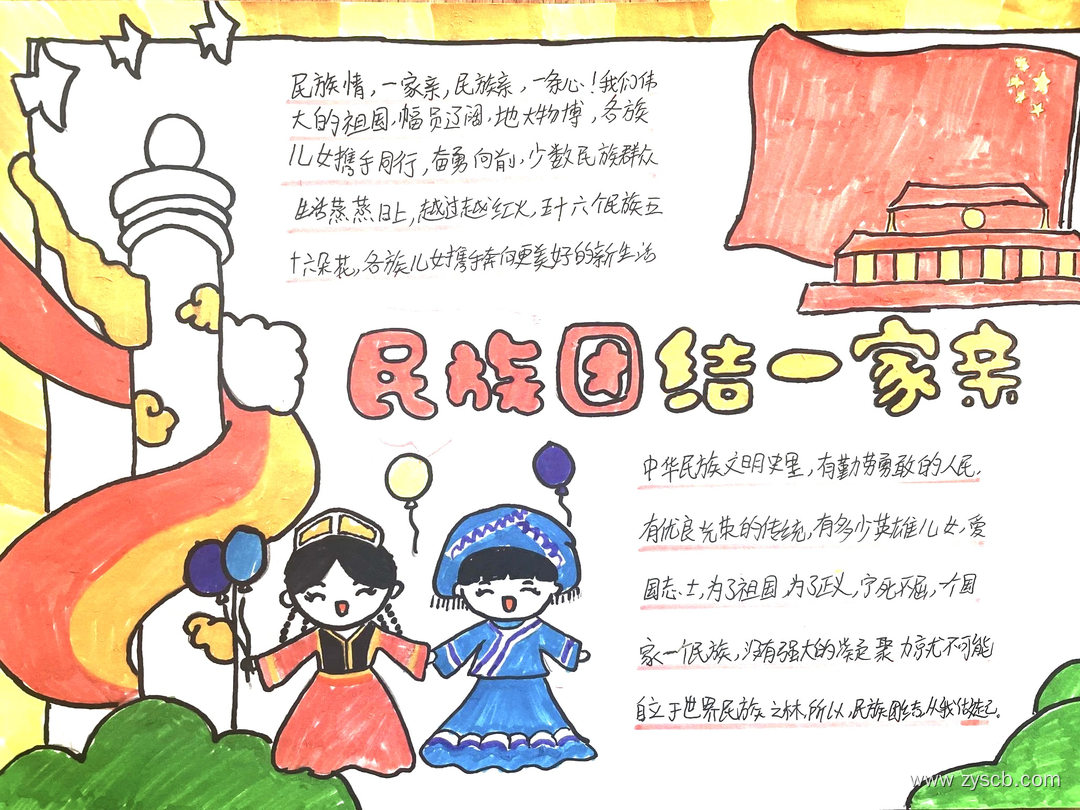 民族情，一家亲，民族亲，一条心！我们伟
大的祖国，幅员辽阔，地大物博，各族
儿女携手同行，奋勇向前，少数民族群众
生活蒸蒸日上，越过越红火，五十六个民族五
十六朵花，各族儿女携手奔向更美好的新生活
民族团结一家亲
中华民族文明史里，有勤劳勇敢的人民，
有优良光荣的传统，有多少英雄儿女，爱
国志士，为了祖国，为了正义，宁死不屈，一个国
家一个民族，没有强大的凝聚力就不可能
自立于世界民族之林，所以，民族团结从我做起。
www.zyscb.com